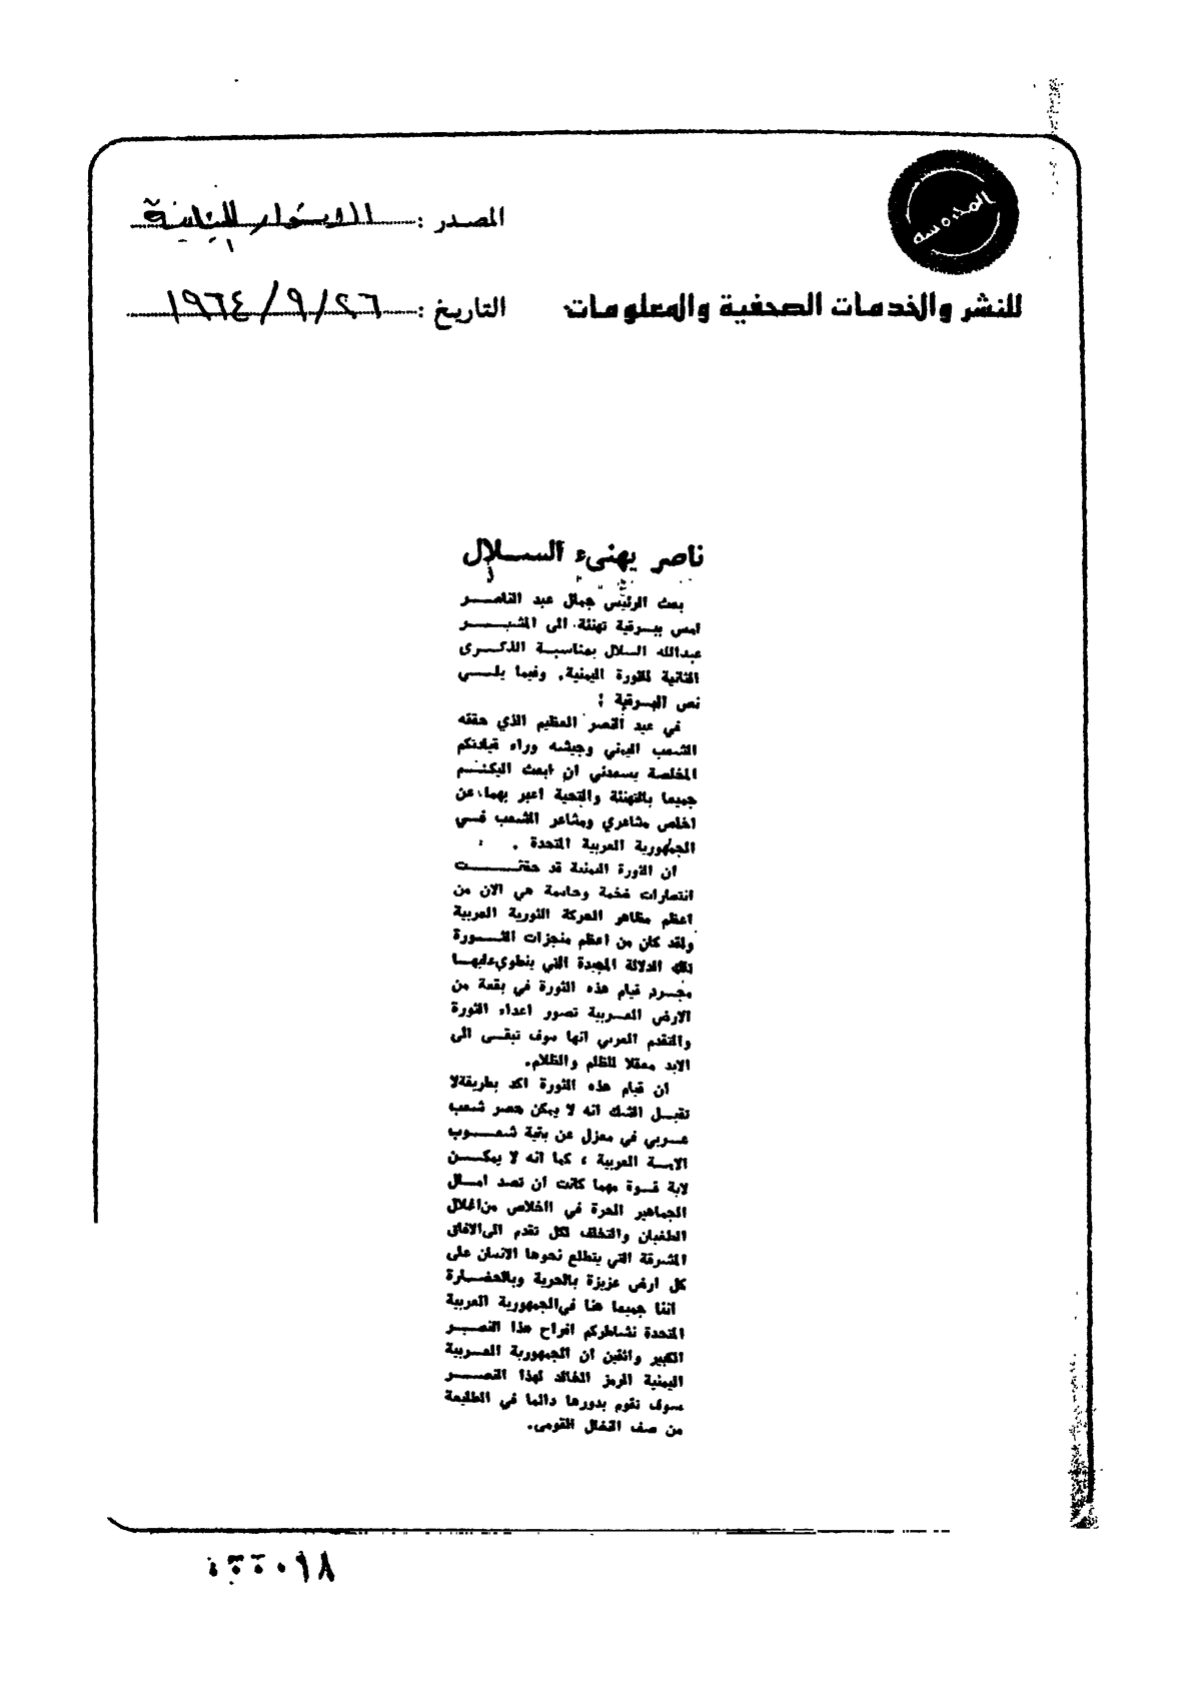 المصدر : الانوار اللبنانية
للنشر والخدمات الصحفية والمعلومات
التاريخ : ٢٦/٩/١٩٦٤
ناصر يهنىء السلال
بعث الرئيس جمال عبد الناصر
امس ببرقية تهنئة الى المشير
عبدالله السلال بمناسبة الذكرى
الثانية للثورة اليمنية, وفيما يلي
نص البرقية :
في عيد النصر العظيم الذي حققه
الشعب اليمني وجيشه وراء قيادتكم
المخلصة يسعدني ان ابعث اليكم
جميعا بالتهنئة والتحية اعبر بهما عن
اخلص مشاعري ومشاعر الشعب في
الجمهورية العربية المتحدة .
ان الثورة اليمنية قد حققت
انتصارات ضخمة وحاسمة هي الان من
اعظم مظاهر الحركة الثورية العربية
ولقد كان من اعظم منجزات الثورة
تلك الدلالة المجيدة التي ينطوي عليها
مجرد قيام هذه الثورة في بقعة من
الارض العربية تصور اعداء الثورة
والتقدم العربي انها سوف تبقى الى
الابد معقلا للظلم والظلام.
ان قيام هذه الثورة اكد بطريقة لا
تقبل الشك انه لا يمكن حصر شعب
عربي في معزل عن بقية شعوب
الامة العربية ، كما انه لا يمكن
لاية قوة مهما كانت ان تصد امال
الجماهير الحرة في الخلاص من اغلال
الطغيان والتخلف لكل تقدم الى الافاق
المشرقة التي يتطلع نحوها الانسان على
كل ارض عزيزة بالحرية وبالحضارة
اننا جميعا هنا في الجمهورية العربية
المتحدة نشاطركم افراح هذا النصر
الكبير واثقين ان الجمهورية العربية
اليمنية الرمز الخالد لهذا النصر
سوف تقوم بدورها دائما في الطليعة
من صف النضال القومي.